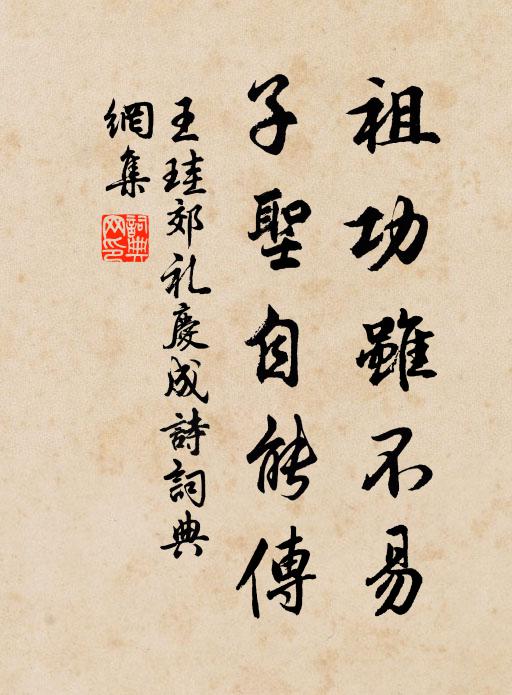 祖功雖不易
子聖自能傳
王珪郊礼慶成詩詞典
網集
詞典網印